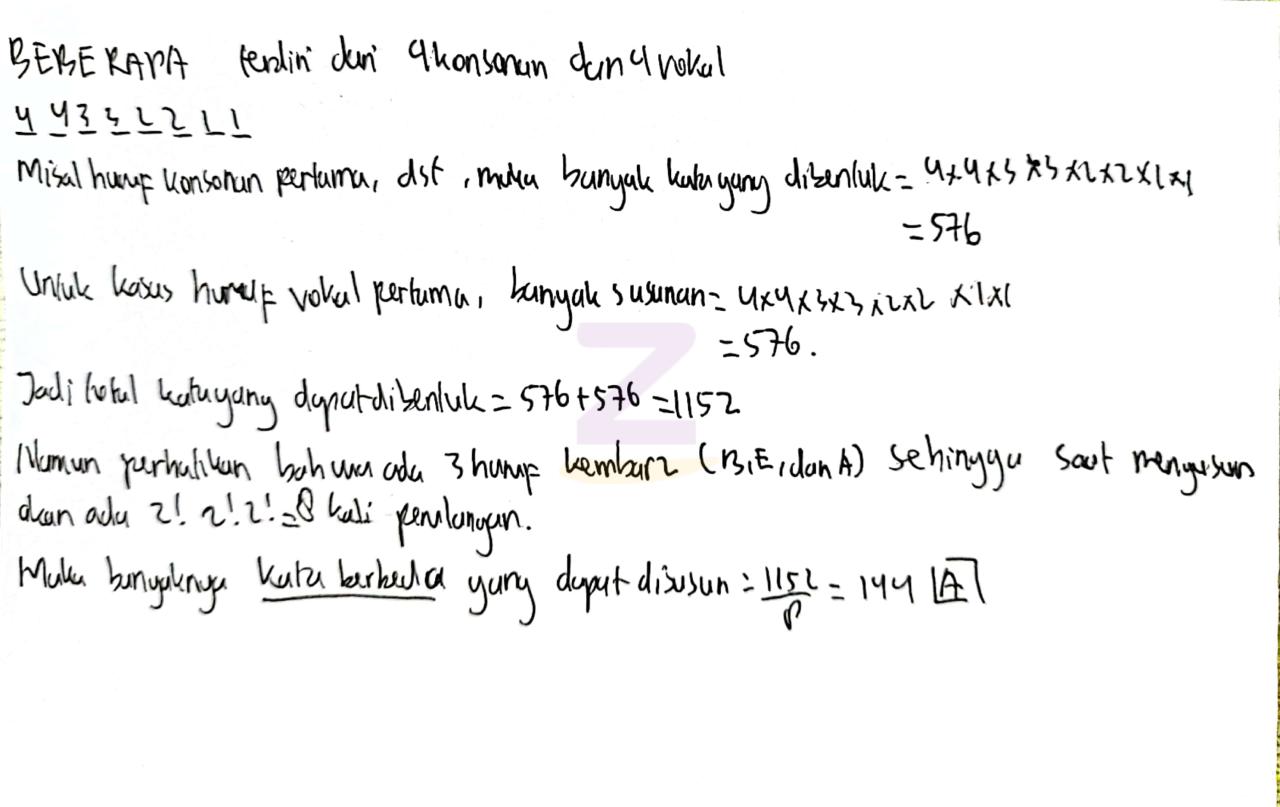 BEBERAPA terdiri dari 4 konsonan dan 4 vokal
4 4 3 3 2 2 1 1
Misal huruf konsonan pertama, dst, maka banyak kata yang dibentuk = 4x4x3x3x2x2x1x1
= 576
Untuk kasus huruf vokal pertama, banyak susunan = 4x4x3x3x2x2x1x1
= 576.
Jadi total kata yang dapat dibentuk = 576 + 576 = 1152
Namun perhatikan bahwa ada 3 huruf kembar 2 (B, E, dan A) sehingga saat menyusun
akan ada 2! 2! 2! = 8 kali perulangan.
Maka banyaknya kata berbeda yang dapat disusun = 1152/8 = 144 A
Z